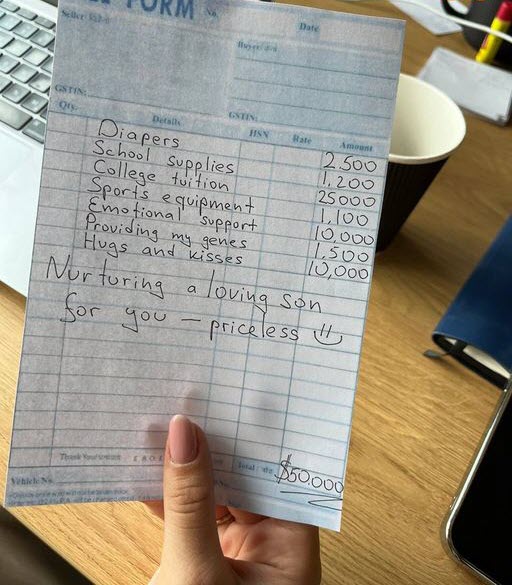 FORM No.
Date
GSTIN:
GSTIN:
Qty. Details HSN Rate Amount
Diapers 2.500
School supplies 1.200
College tuition 25000
Sports equipment 1.100
Emotional support 10.000
Providing my genes 1.500
Hugs and kisses 10,000
Nurturing a loving son
for you – priceless
Total $50.000
Vehicle No.